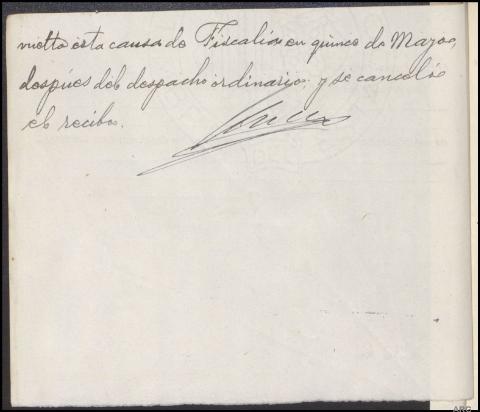 vuelta esta causa de Fiscalía en quince de Mayo,
después del despacho ordinario; y se canceló
el recibo.